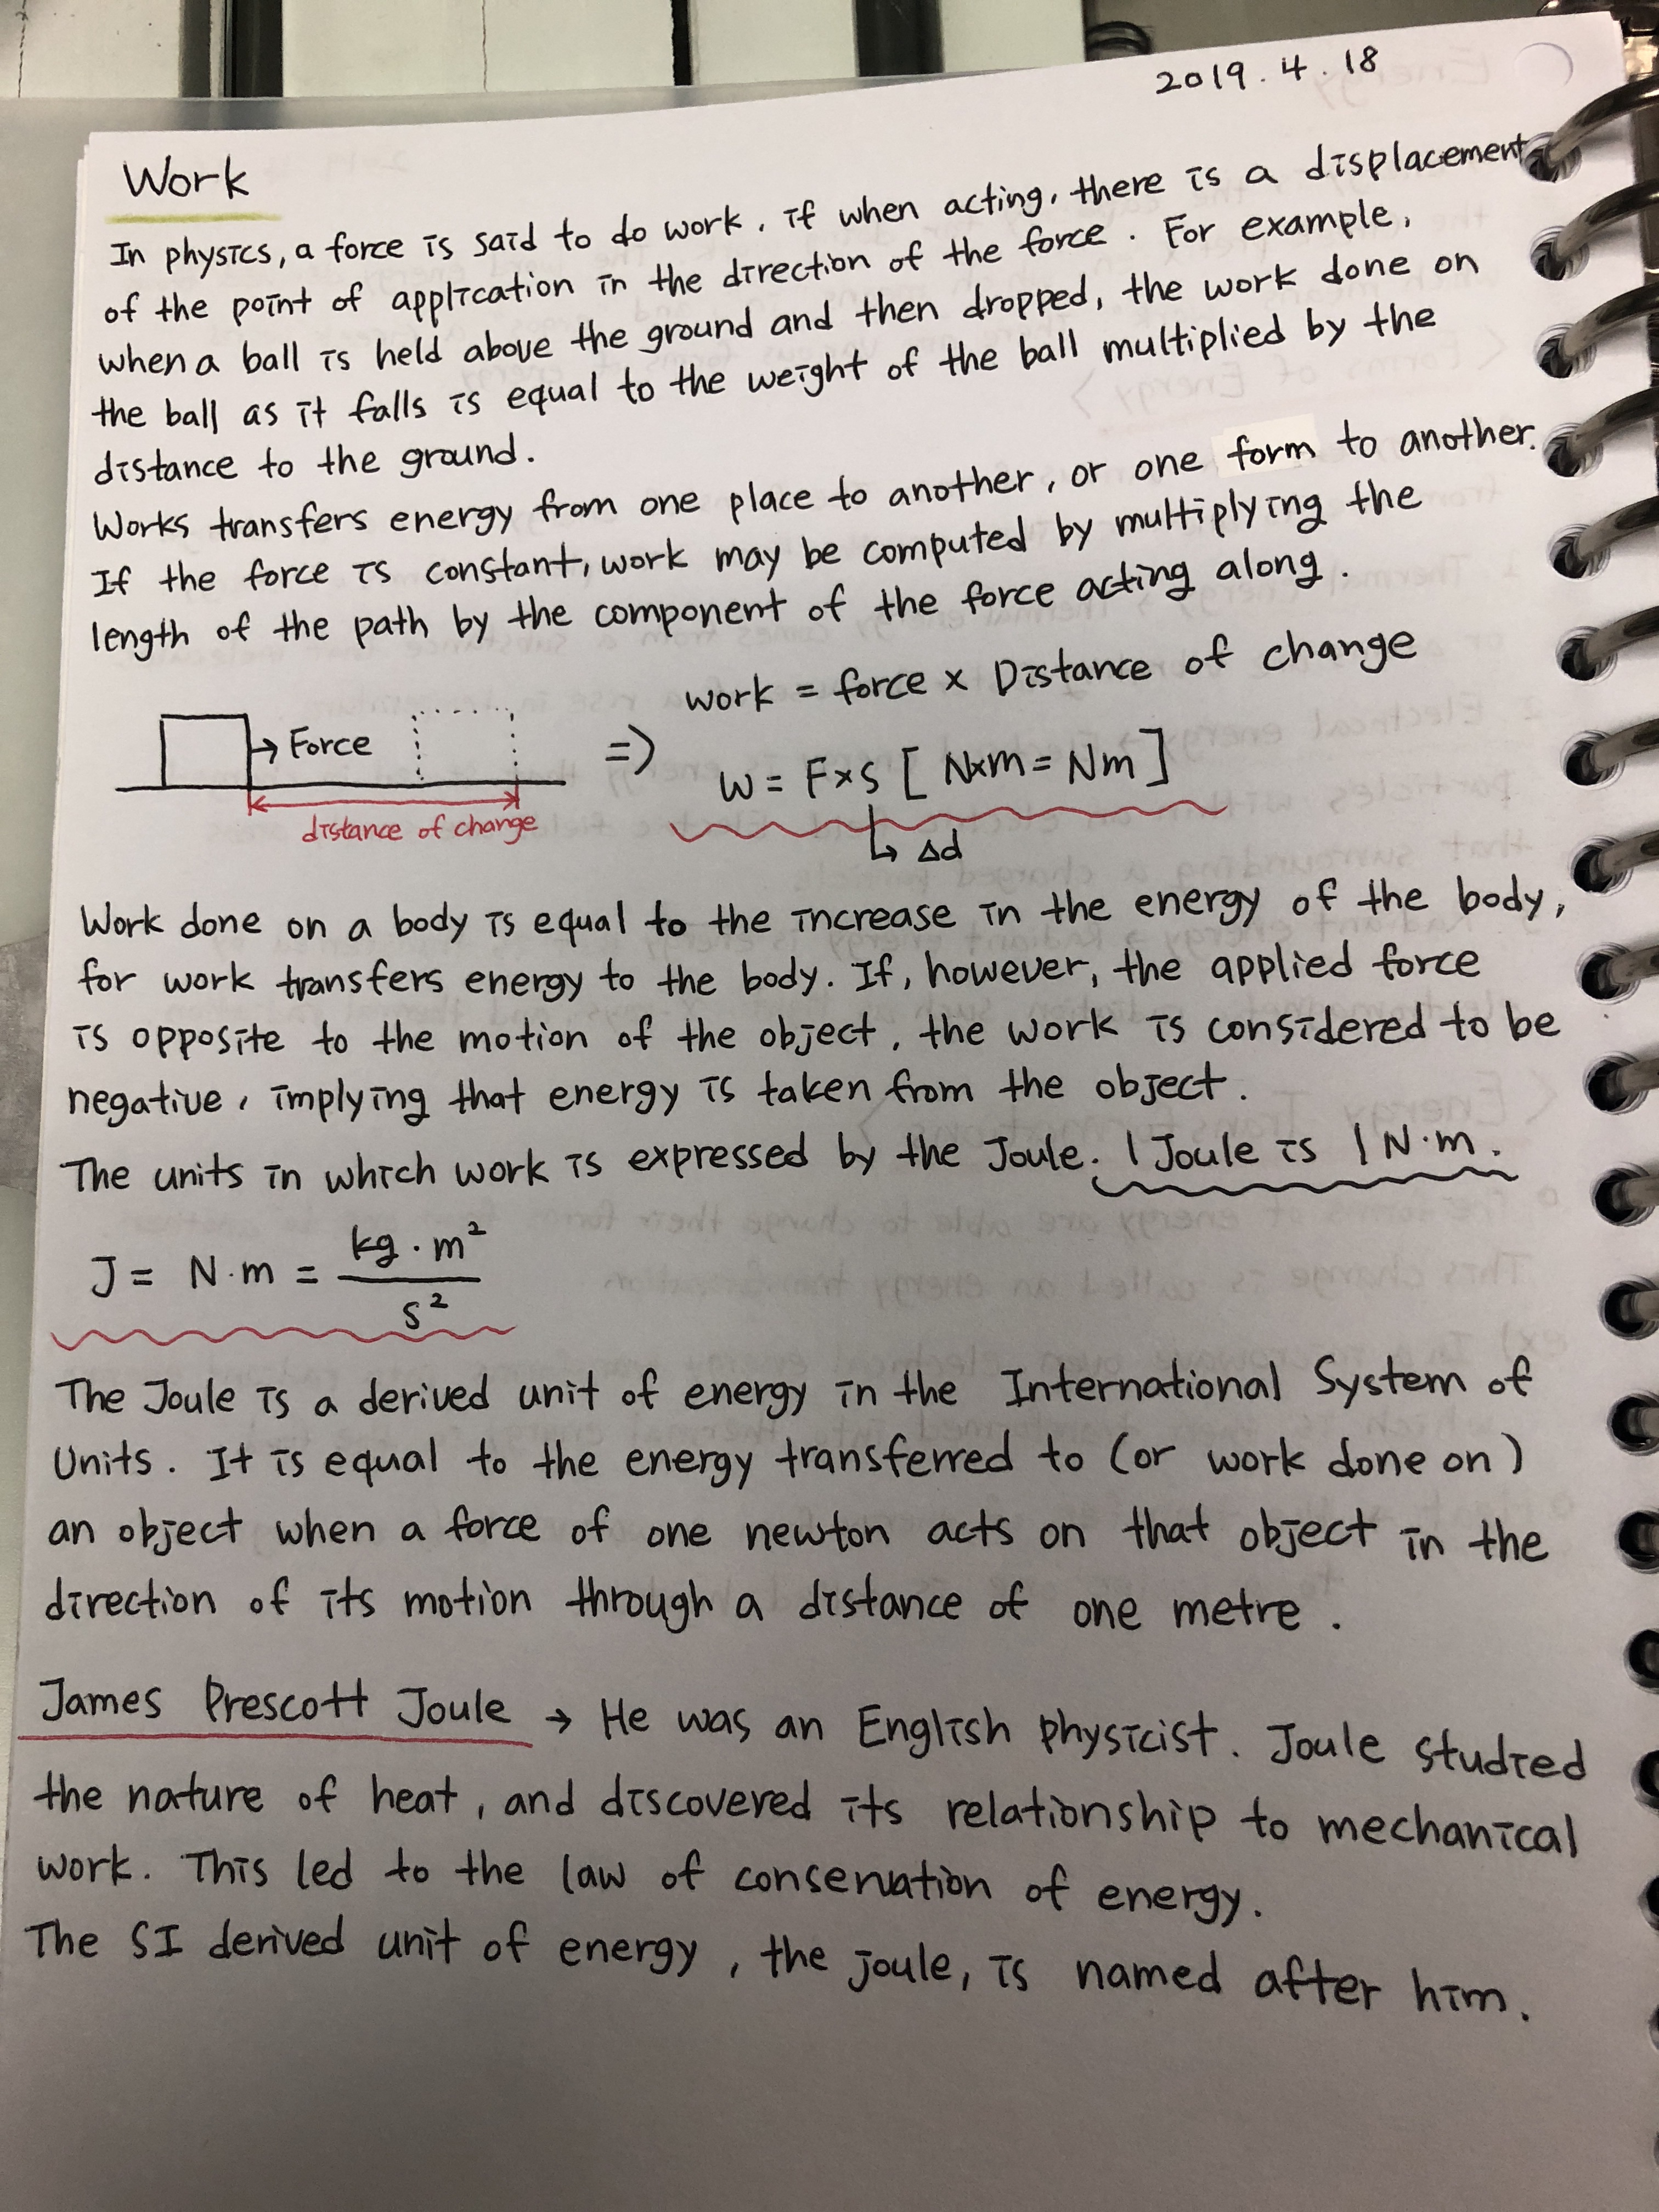 2019.4.18
Work
In physics, a force is said to do work, if when acting, there is a displacement
of the point of application in the direction of the force. For example,
when a ball is held above the ground and then dropped, the work done on
the ball as it falls is equal to the weight of the ball multiplied by the
distance to the ground.
Works transfers energy from one place to another, or one form to another.
If the force is constant, work may be computed by multiplying the
length of the path by the component of the force acting along.
work = force × Distance of change
→ Force
=>
W = F×s [ N×m = Nm ]
distance of change
↳ Δd
Work done on a body is equal to the increase in the energy of the body,
for work transfers energy to the body. If, however, the applied force
is opposite to the motion of the object, the work is considered to be
negative, implying that energy is taken from the object.
The units in which work is expressed by the Joule. 1 Joule is 1 N·m.
J = N·m = kg·m² / s²
The Joule is a derived unit of energy in the International System of
Units. It is equal to the energy transferred to (or work done on)
an object when a force of one newton acts on that object in the
direction of its motion through a distance of one metre.
James Prescott Joule → He was an English physicist. Joule studied
the nature of heat, and discovered its relationship to mechanical
work. This led to the law of conservation of energy.
The SI derived unit of energy, the joule, is named after him.